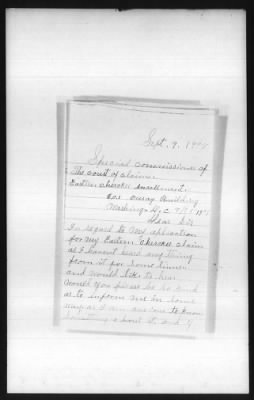 Sept. 9, 190
Special commissioner of
The court of claims
Eastern Cherokee enrollment.
601 Ouray Building
Washington D, C
Dear Sir
In regard to my application
for my Eastern Cherokee claim
as I havent heard any thing
from it for some time
and would like to hear
would you please be so kind
as to inform me in some
way as I am anxious to know
something about it, and if